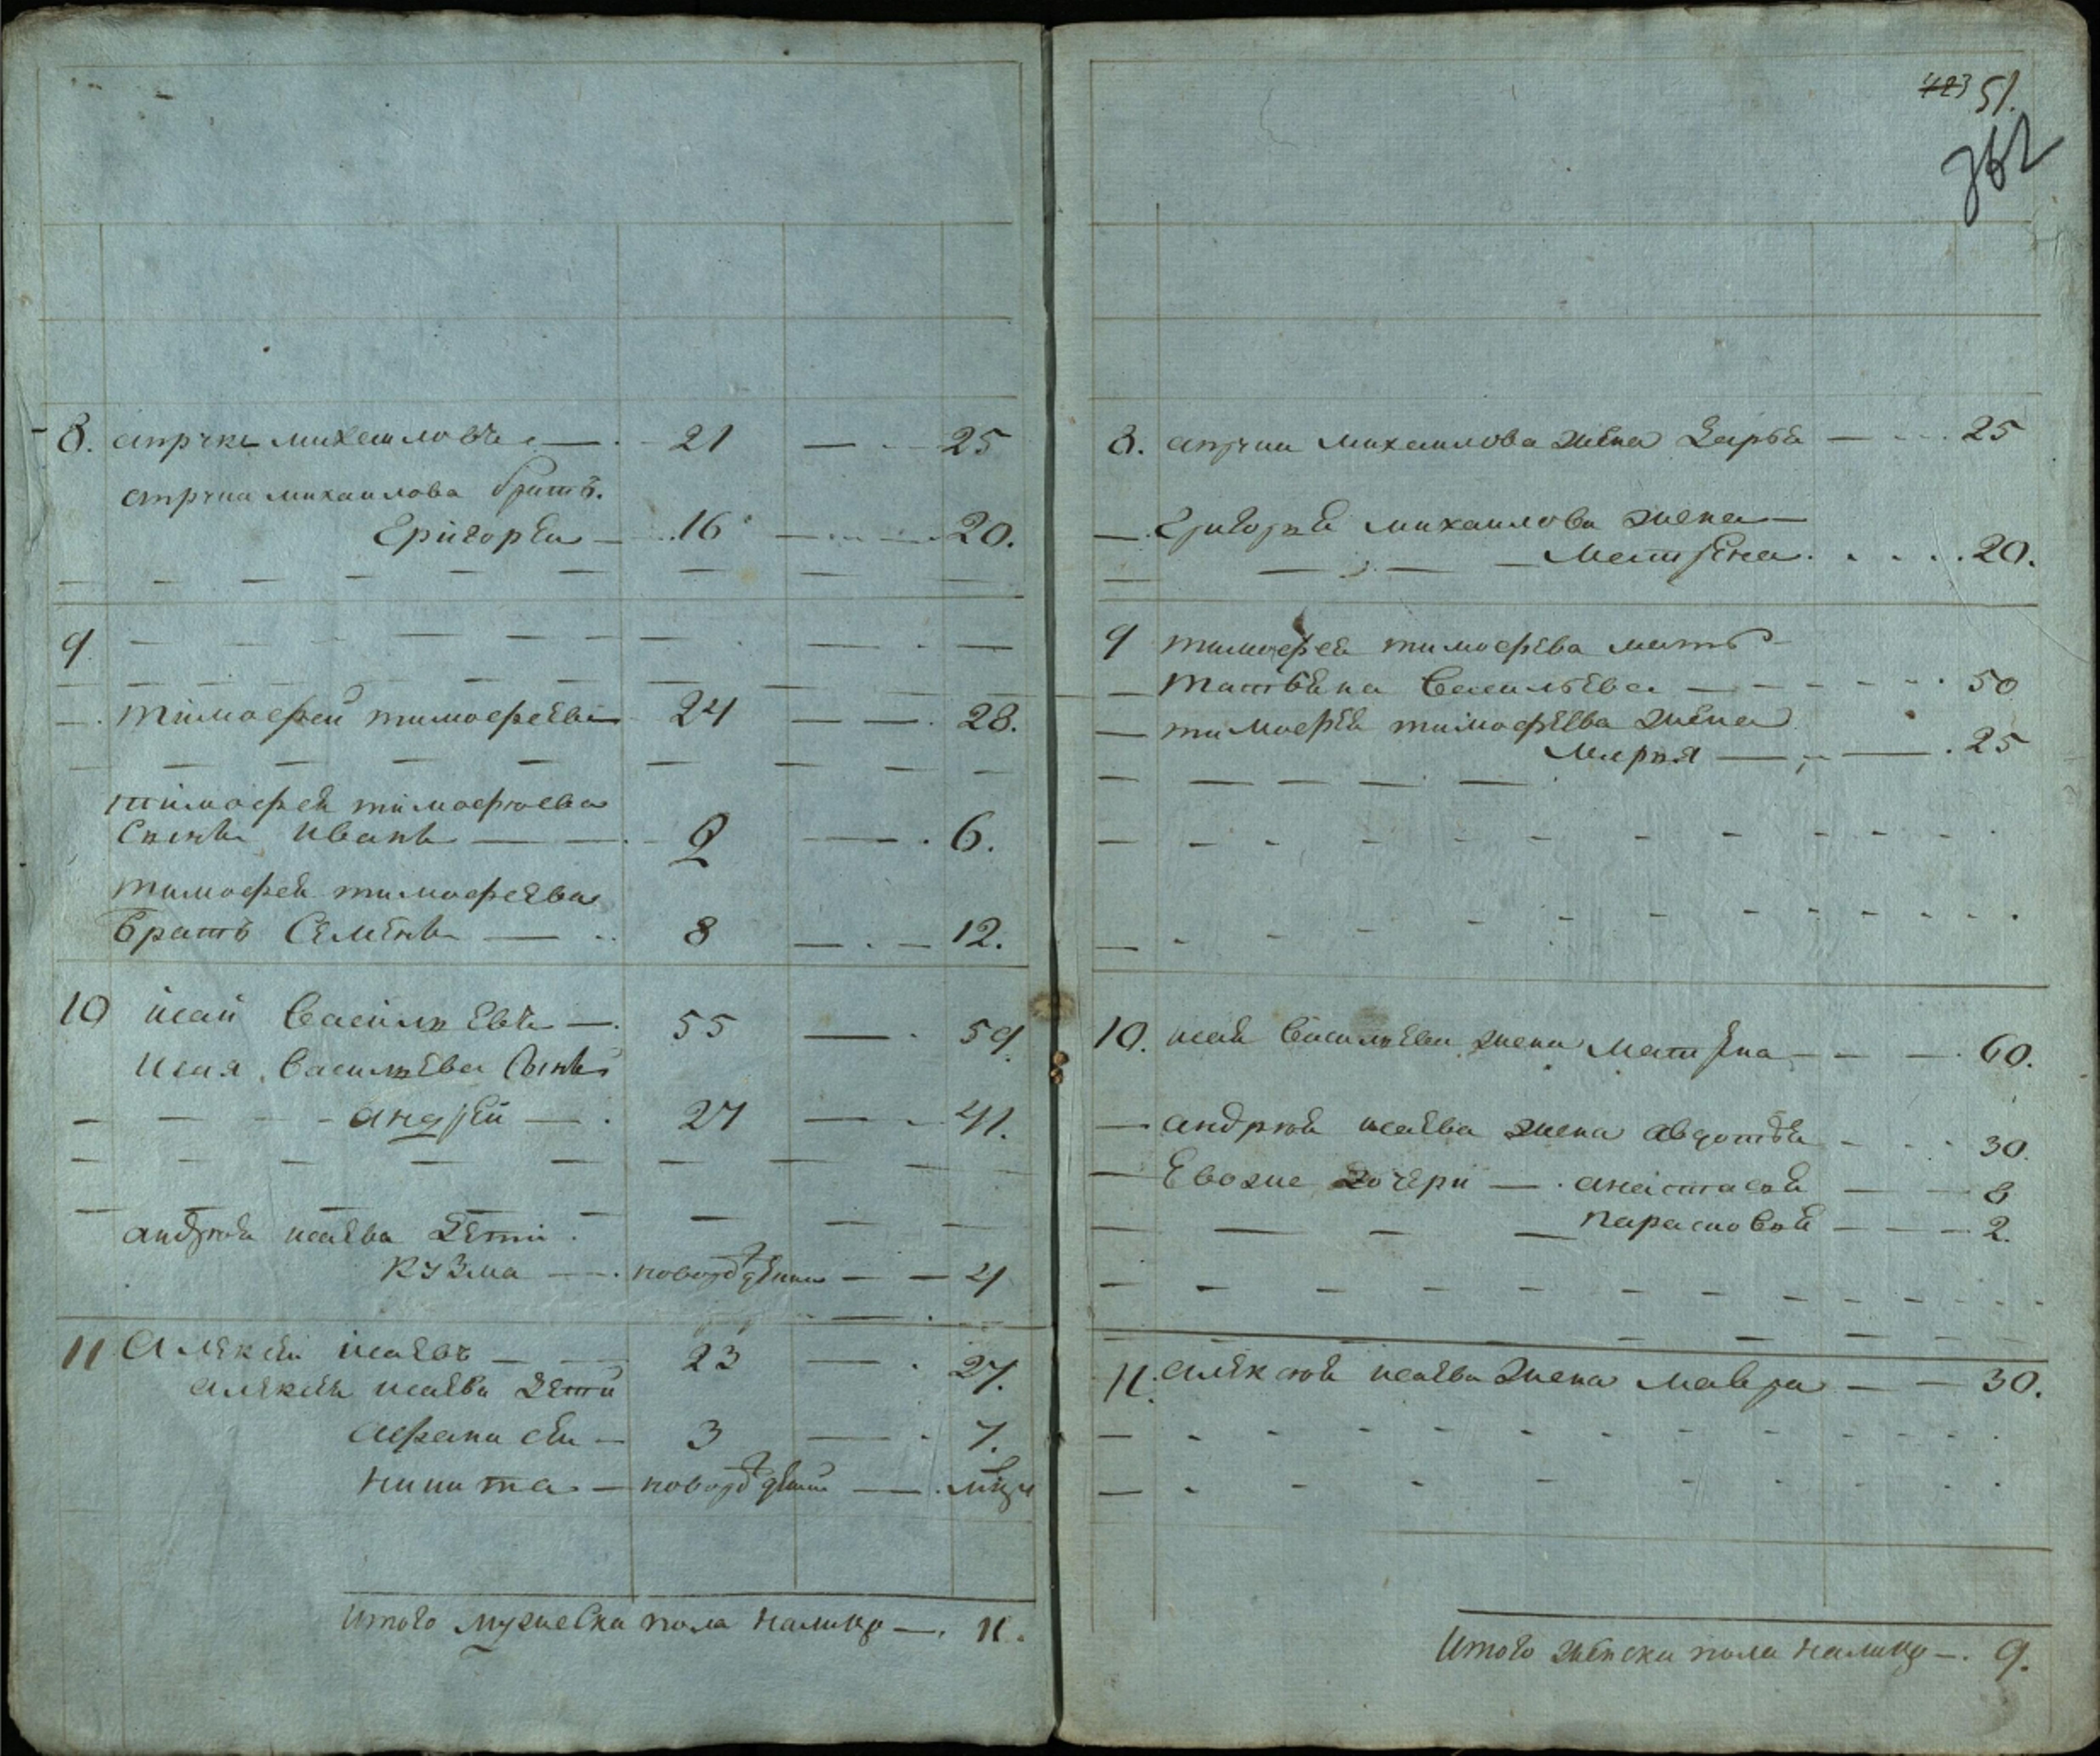 8. михаиловъ — 21 — 25
михаилова братъ.
Григореи — 16 — 20.
9
тимофей тимофеевъ 24 — 28.
тимофеи тимофѣева
Сынъ иванъ — 2 — 6.
тимофеи тимофеева
братъ Семенъ — 8 — 12.
10 исай Васильевъ — 55 — 59.
исая Васильева Сынъ
андрей — 27 — 41.
андрѣи исаева дети
кузма — новорожденъ — 4
11 Алексеи исаевъ — 23 — 27.
алексеи исаева дети
афанасеи — 3 — 7.
никита — новорожденъ —
итого мужеска пола налицо — 11.
423 51.
362
8. михаилова жена Дарья — 25
Григорьи михаилова жена
матрена 20.
9 тимофеи тимофева мать
татьяна Васильева — 50
тимофеи тимофеева жена
марья — 25
10. исаи Васильева жена матрена — 60.
андрѣи исаева жена авдотья — 30.
Евоже дочери — анастасья — 8
парасковья — 2.
11. алексѣи исаева жена мавра — 30.
Итого женска пола налицо — 9.